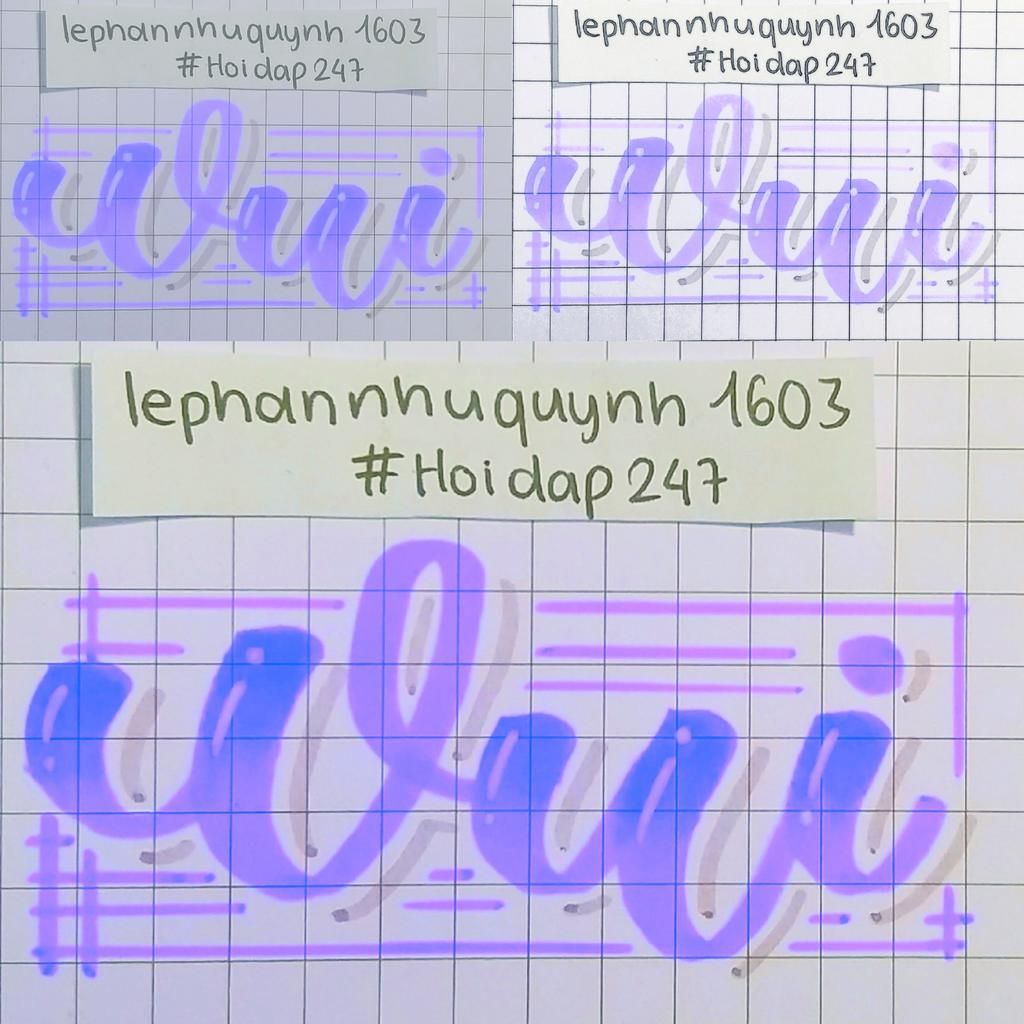 lephannhuquynh 1603
#Hoidap 247
Wui
lephannhuquynh 1603
#Hoidap 247
Wui
lephannhuquynh 1603
#Hoidap 247
Wui